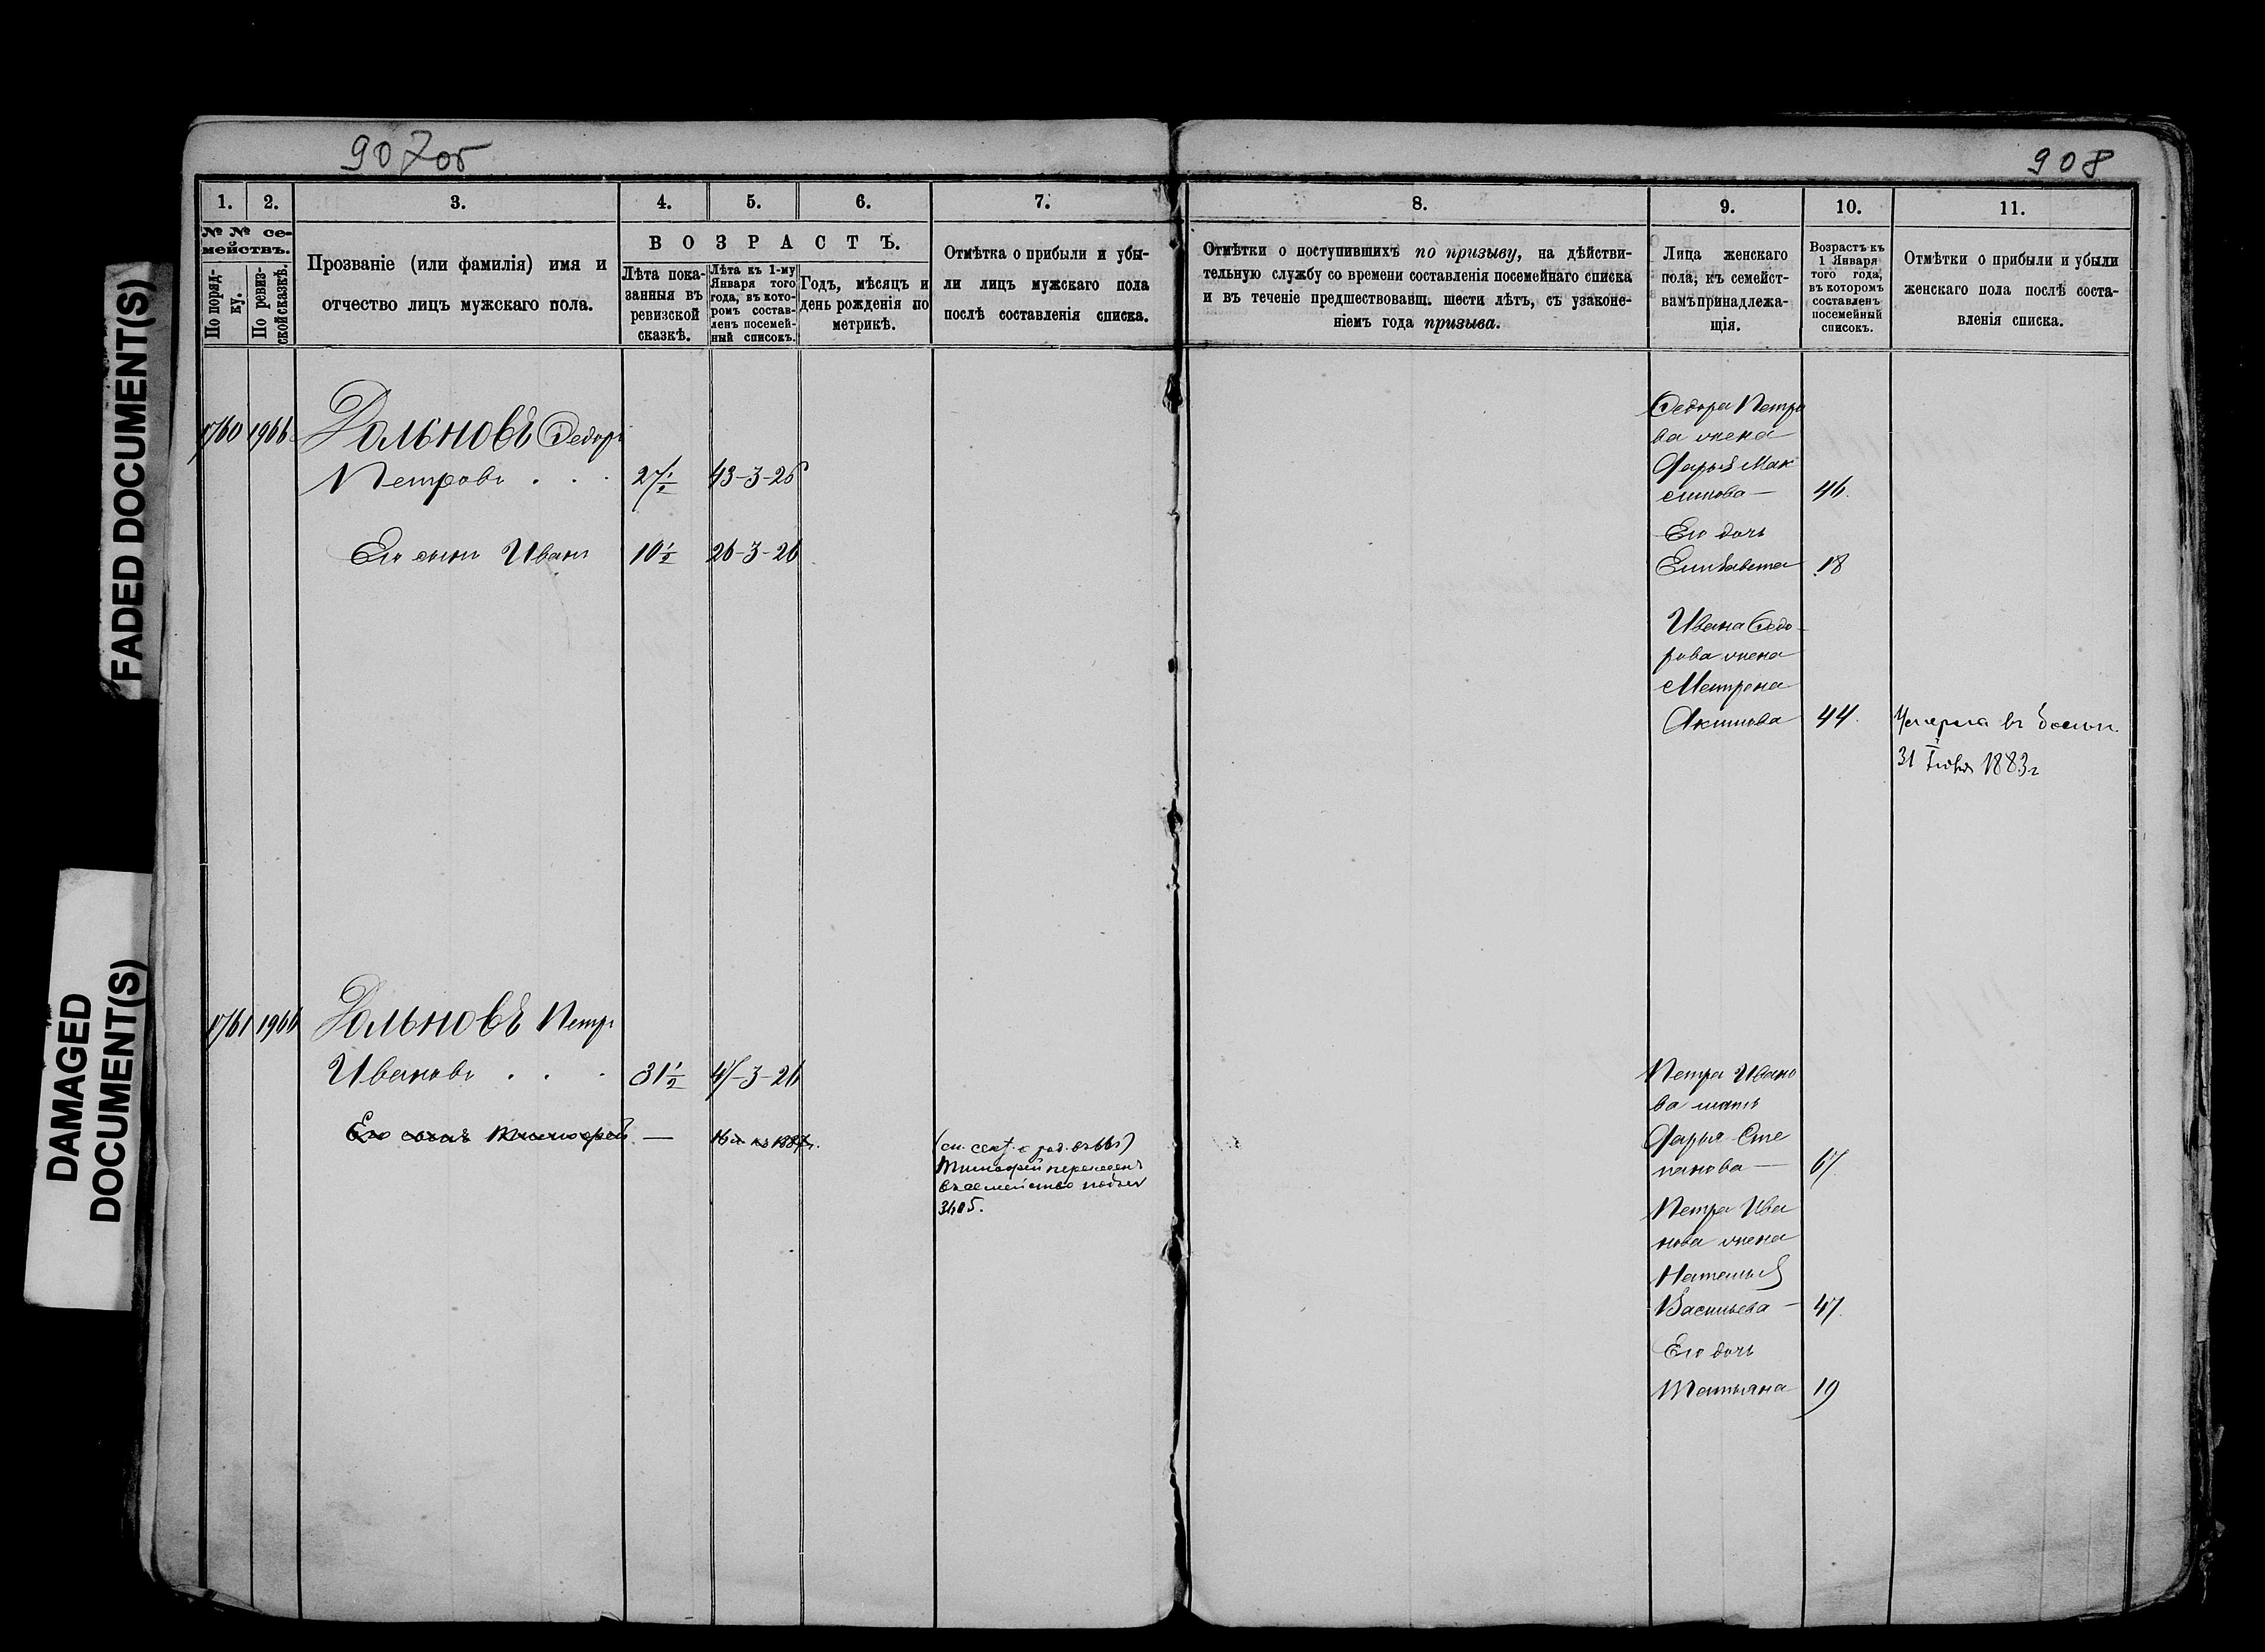 907об
908
FADED DOCUMENT(S)
DAMAGED
DOCUMENT(S)
1. 2. 3. 4. 5. 6. 7. 8. 9. 10. 11.
№ № се-
мействъ.
По поряд-
ку.
По ревиз-
ской сказкѣ.
Прозваніе (или фамилія) имя и
отчество лицъ мужскаго пола.
ВОЗРАСТЪ.
Лѣта пока-
занныя въ
ревизской
сказкѣ.
Лѣта къ 1-му
Января того
года, въ кото-
ромъ состав-
ленъ посемей-
ный списокъ.
Годъ, мѣсяцъ и
день рожденія по
метрикѣ.
Отмѣтка о прибыли и убы-
ли лицъ мужскаго пола
послѣ составленія списка.
Отмѣтки о поступившихъ по призыву, на дѣйстви-
тельную службу со времени составленія посемейнаго списка
и въ теченіе предшествовавщ. шести лѣтъ, съ узаконе-
ніемъ года призыва.
Лица женскаго
пола, къ семейст-
вамъ принадлежа-
щія.
Возрастъ къ
1 Января
того года,
въ которомъ
составленъ
посемейный
списокъ.
Отмѣтки о прибыли и убыли
женскаго пола послѣ соста-
вленія списка.
1760 1966 Дольновъ Федоръ
Петровъ . . . 27½ 43-3-26
Его сынъ Иванъ 10½ 26-3-26
Федора Петро
ва жена
Дарья Мак
симова — 46.
Его дочь
Елизавета 18
Ивана Федо-
рова жена
Матрена
Акимова 44. Умерла въ
31 Іюля 1883г
1761 1966 Дольновъ Петръ
Ивановъ . . . 31½ 47-3-26
Его сынъ Тимофей — 16 л. къ 1887г.
Тимофей перенесенъ
въ семейство подъ №
3405.
Петра Ивано
ва мать
Дарья Сте
панова — 67
Петра Ива
нова жена
Наталья
Васильева — 47.
Его дочь
Татьяна 19